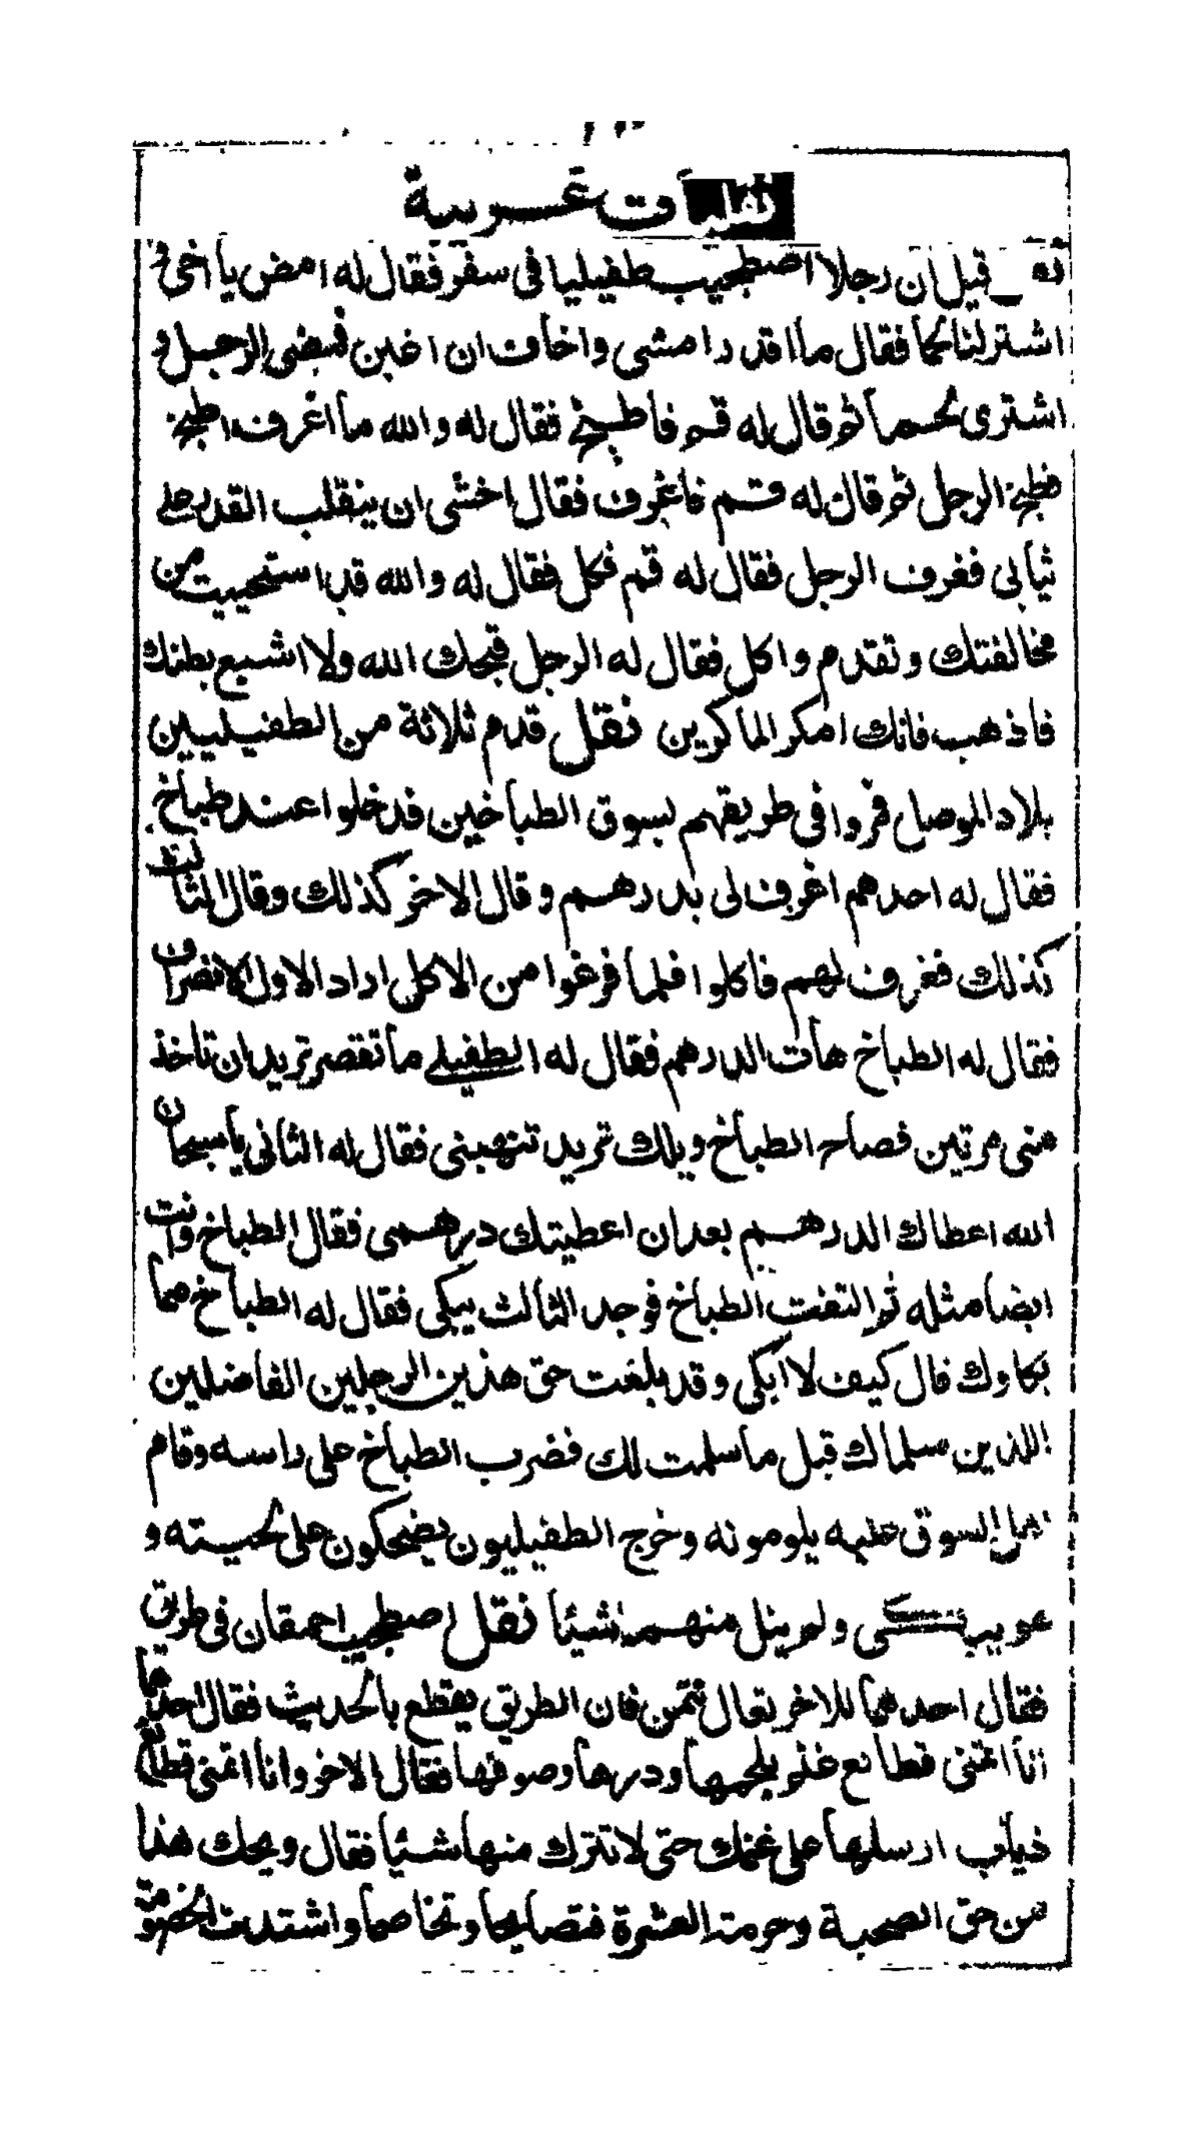 نقليات عربية
نقل قيل ان رجلا اصطحب طفيليا في سفر فقال له امض يا اخي و
اشتر لنا لحما فقال ما اقدر امشي واخاف ان اغبن فمضى الرجل و
اشترى لحما ثم قال له قم فاطبخ فقال له والله ما اعرف اطبخ
فطبخ الرجل ثم قال له قم فاغرف فقال اخشى ان ينقلب القدر على
ثيابي فغرف الرجل فقال له قم فكل فقال له والله قد استحييت من
مخالفتك وتقدم واكل فقال له الرجل قبحك الله ولا اشبع بطنك
فاذهب فانك امكر الماكرين نقل قدم ثلاثة من الطفيليين
بلاد الموصل فمروا في طريقهم بسوق الطباخين فدخلوا عند طباخ
فقال له احدهم اغرف لي بدرهم وقال الاخر كذلك وقال الثالث
كذلك فغرف لهم فاكلوا فلما فرغوا من الاكل اراد الاول الانصراف
فقال له الطباخ هات الدرهم فقال له الطفيلي ما تقصر تريد ان تاخذ
مني مرتين فصاح الطباخ ويلك تريد تنهبني فقال له الثاني يا سبحان
الله اعطاك الدرهم بعد ان اعطيتك درهمي فقال الطباخ وانت
ايضا مثله ثم التفت الطباخ فوجد الثالث يبكي فقال له الطباخ مما
بكاوك قال كيف لا ابكي وقد بلغت حق هذين الرجلين الفاضلين
اللذين سلماك قبل ما سلمت لك فضرب الطباخ على راسه وقام
اهل السوق عليه يلومونه وخرج الطفيليون يضحكون على لحيته و
هو يبكي ولم ينل منهم شيئا نقل اصطحب احمقان في طريق
فقال احدهما للاخر تعال نتمن فان الطريق يقطع بالحديث فقال احدهما
انا اتمنى قطائع غنم بلحمها ودرها وصوفها فقال الاخر وانا اتمنى قطائع
ذياب ارسلها على غنمك حتى لا تترك منها شيئا فقال ويحك هذا
من حق الصحبة وحرمة العشرة فتصايحا وتخاصما واشتدت الخصومة